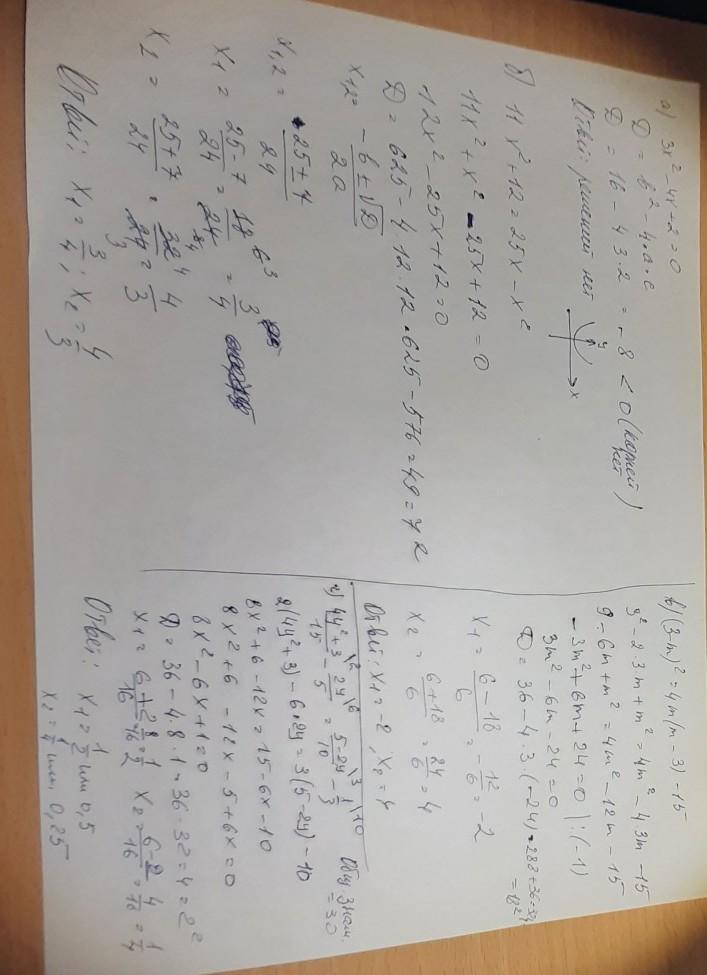 а) 3x² - 4x + 2 = 0
D = b² - 4·a·c
D = 16 - 4·3·2 = -8 < 0 (корней нет)
Ответ: решений нет
y
x
б) 11x² + 12 = 25x - x²
11x² + x² - 25x + 12 = 0
12x² - 25x + 12 = 0
D = 625 - 4·12·12 = 625 - 576 = 49 = 7²
x₁,₂ = (-b ± √D)/2a
x₁,₂ = (25 ± 7)/24
x₁ = (25-7)/24 = 18/24 = 3/4
x₂ = (25+7)/24 = 32/24 = 4/3
Ответ: x₁ = 3/4; x₂ = 4/3
в) (3-m)² = 4m(m-3) - 15
3² - 2·3m + m² = 4m² - 43m - 15
9 - 6m + m² = 4m² - 12m - 15
-3m² + 6m + 24 = 0 | :(-1)
3m² - 6m - 24 = 0
D = 36 - 4·3·(-24) = 288 + 36 = 324 = 18²
x₁ = (6-18)/6 = -12/6 = -2
x₂ = (6+18)/6 = 24/6 = 4
Ответ: x₁ = -2; x₂ = 4
г) (4y²+3)/15 \2 - 2y/5 \6 = (5-2y)/10 \3 - 1/3 \10
Общ. знам. = 30
2(4y²+3) - 6·2y = 3(5-2y) - 10
8x² + 6 - 12x = 15 - 6x - 10
8x² + 6 - 12x - 5 + 6x = 0
8x² - 6x + 1 = 0
D = 36 - 4·8·1 = 36 - 32 = 4 = 2²
x₁ = (6+2)/16 = 8/16 = 1/2 x₂ = (6-2)/16 = 4/16 = 1/4
Ответ: x₁ = 1/2 или 0,5
x₂ = 1/4 или 0,25